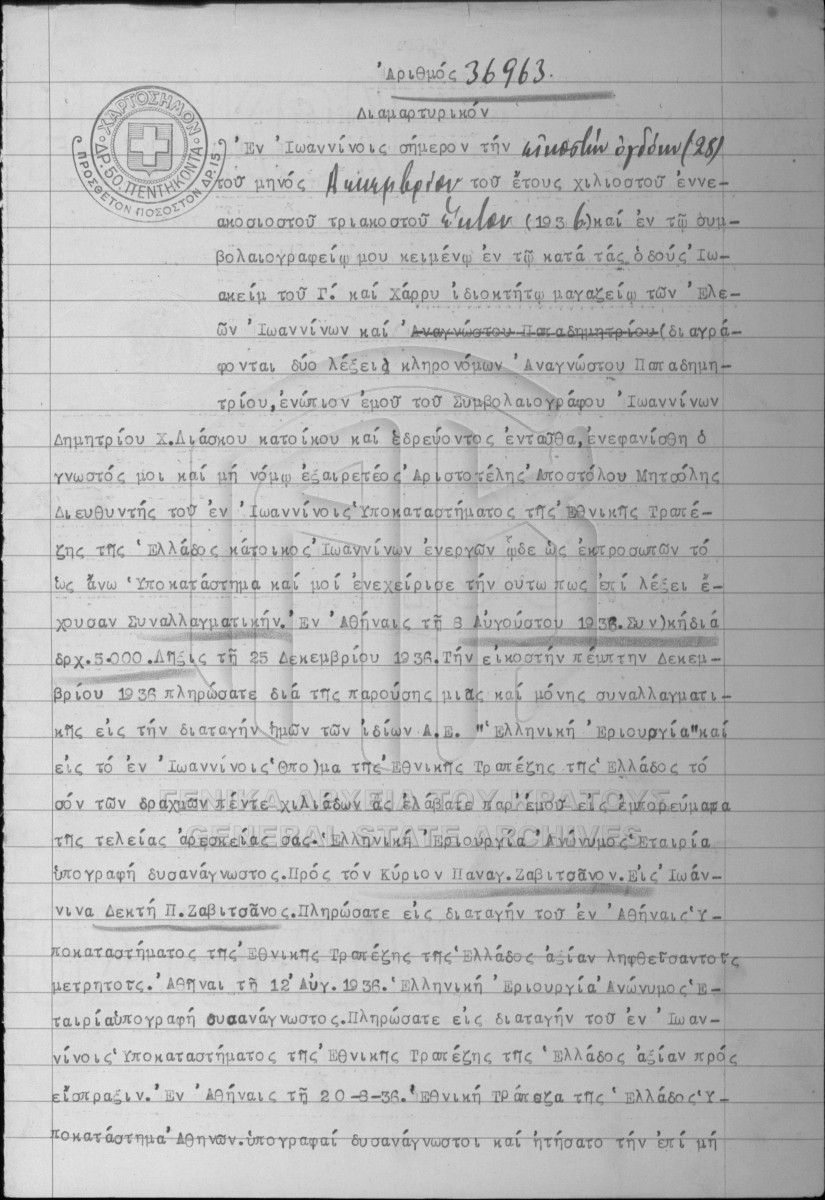 Ἀριθμός 36963.
Διαμαρτυρικόν
ΧΑΡΤΟΣΗΜΟΝ
ΔΡ. 50. ΠΕΝΤΗΚΟΝΤΑ
ΠΡΟΣΘΕΤΟΝ ΠΟΣΟΣΤΟΝ ΔΡ. 15
Ἐν Ἰωαννίνοις σήμερον τήν εἰκοστήν ὀγδόην (28)
τοῦ μηνός Δεκεμβρίου τοῦ ἔτους χιλιοστοῦ ἐννε-
ακοσιοστοῦ τριακοστοῦ ἕκτου (1936) καί ἐν τῷ συμ-
βολαιογραφείῳ μου κειμένῳ ἐν τῷ κατά τάς ὁδούς Ἰω-
ακείμ τοῦ Γ. καί Χάρρυ ἰδιοκτήτῳ μαγαζείῳ τῶν Ἐλε-
ῶν Ἰωαννίνων καί Ἀναγνώστου Παπαδημητρίου (διαγρά-
φονται δύο λέξεις) κληρονόμων Ἀναγνώστου Παπαδημη-
τρίου, ἐνώπιον ἐμοῦ τοῦ Συμβολαιογράφου Ἰωαννίνων
Δημητρίου Χ. Λιάσκου κατοίκου καί ἑδρεύοντος ἐνταῦθα, ἐνεφανίσθη ὁ
γνωστός μοι καί μή νόμῳ ἐξαιρετέος Ἀριστοτέλης Ἀποστόλου Μητσόλης
Διευθυντής τοῦ ἐν Ἰωαννίνοις Ὑποκαταστήματος τῆς Ἐθνικῆς Τραπέ-
ζης τῆς Ἑλλάδος κάτοικος Ἰωαννίνων ἐνεργῶν ὧδε ὡς ἐκπροσωπῶν τό
ὡς ἄνω Ὑποκατάστημα καί μοί ἐνεχείρισε τήν οὕτω πως ἐπί λέξει ἔ-
χουσαν Συναλλαγματικήν. Ἐν Ἀθήναις τῇ 8 Αὐγούστου 1936. Συν)κή διά
δρχ. 5.000. Λῆξις τῇ 25 Δεκεμβρίου 1936. Τήν εἰκοστήν πέμπτην Δεκεμ-
βρίου 1936 πληρώσατε διά τῆς παρούσης μιᾶς καί μόνης συναλλαγματι-
κῆς εἰς τήν διαταγήν ἡμῶν τῶν ἰδίων Α.Ε. "Ἑλληνική Ἐριουργία" καί
εἰς τό ἐν Ἰωαννίνοις Ὑπο)μα τῆς Ἐθνικῆς Τραπέζης τῆς Ἑλλάδος τό
σόν τῶν δραχμῶν πέντε χιλιάδων ἅς ἐλάβατε παρ' ἐμοῦ εἰς ἐμπορεύματα
τῆς τελείας ἀρεσκείας σας. Ἑλληνική Ἐριουργία Ἀνώνυμος Ἑταιρία
ὑπογραφή δυσανάγνωστος. Πρός τόν Κύριον Παναγ. Ζαβιτσᾶνον. Εἰς Ἰωάν-
νινα Δεκτή Π. Ζαβιτσᾶνος. Πληρώσατε εἰς διαταγήν τοῦ ἐν Ἀθήναις Ὑ-
ποκαταστήματος τῆς Ἐθνικῆς Τραπέζης τῆς Ἑλλάδος ἀξίαν ληφθεῖσαν τοῖς
μετρητοῖς. Ἀθῆναι τῇ 12 Αὐγ. 1936. Ἑλληνική Ἐριουργία Ἀνώνυμος Ἑ-
ταιρία ὑπογραφή δυσανάγνωστος. Πληρώσατε εἰς διαταγήν τοῦ ἐν Ἰωαν-
νίνοις Ὑποκαταστήματος τῆς Ἐθνικῆς Τραπέζης τῆς Ἑλλάδος ἀξίαν πρός
εἴσπραξιν. Ἐν Ἀθήναις τῇ 20-8-36. Ἐθνική Τράπεζα τῆς Ἑλλάδος Ὑ-
ποκατάστημα Ἀθηνῶν. ὑπογραφαί δυσανάγνωστοι καί ᾐτήσατο τήν ἐπί μή
ΓΕΝΙΚΑ ΑΡΧΕΙΑ ΤΟΥ ΚΡΑΤΟΥΣ
GENERAL STATE ARCHIVES